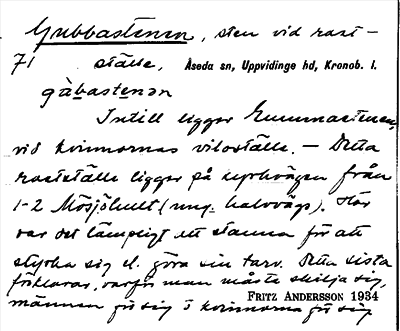 Gubbastenen, sten vid rast-
71 ställe, Åseda sn, Uppvidinge hd, Kronob. l.
gàbastenən
Intill ligger Gummastenen,
vid kvinnornas viloställe. – Detta
raststället ligger på kyrkvägen från
1-2 Mösjöhult (ung. halvvägs). Här
var det lämpligt att stanna för att
styrka sig el. göra sin tarv. Detta sista
förklarar, varför man måste skilja sig,
männen för sig o kvinnorna för sig
FRITZ ANDERSSON 1934